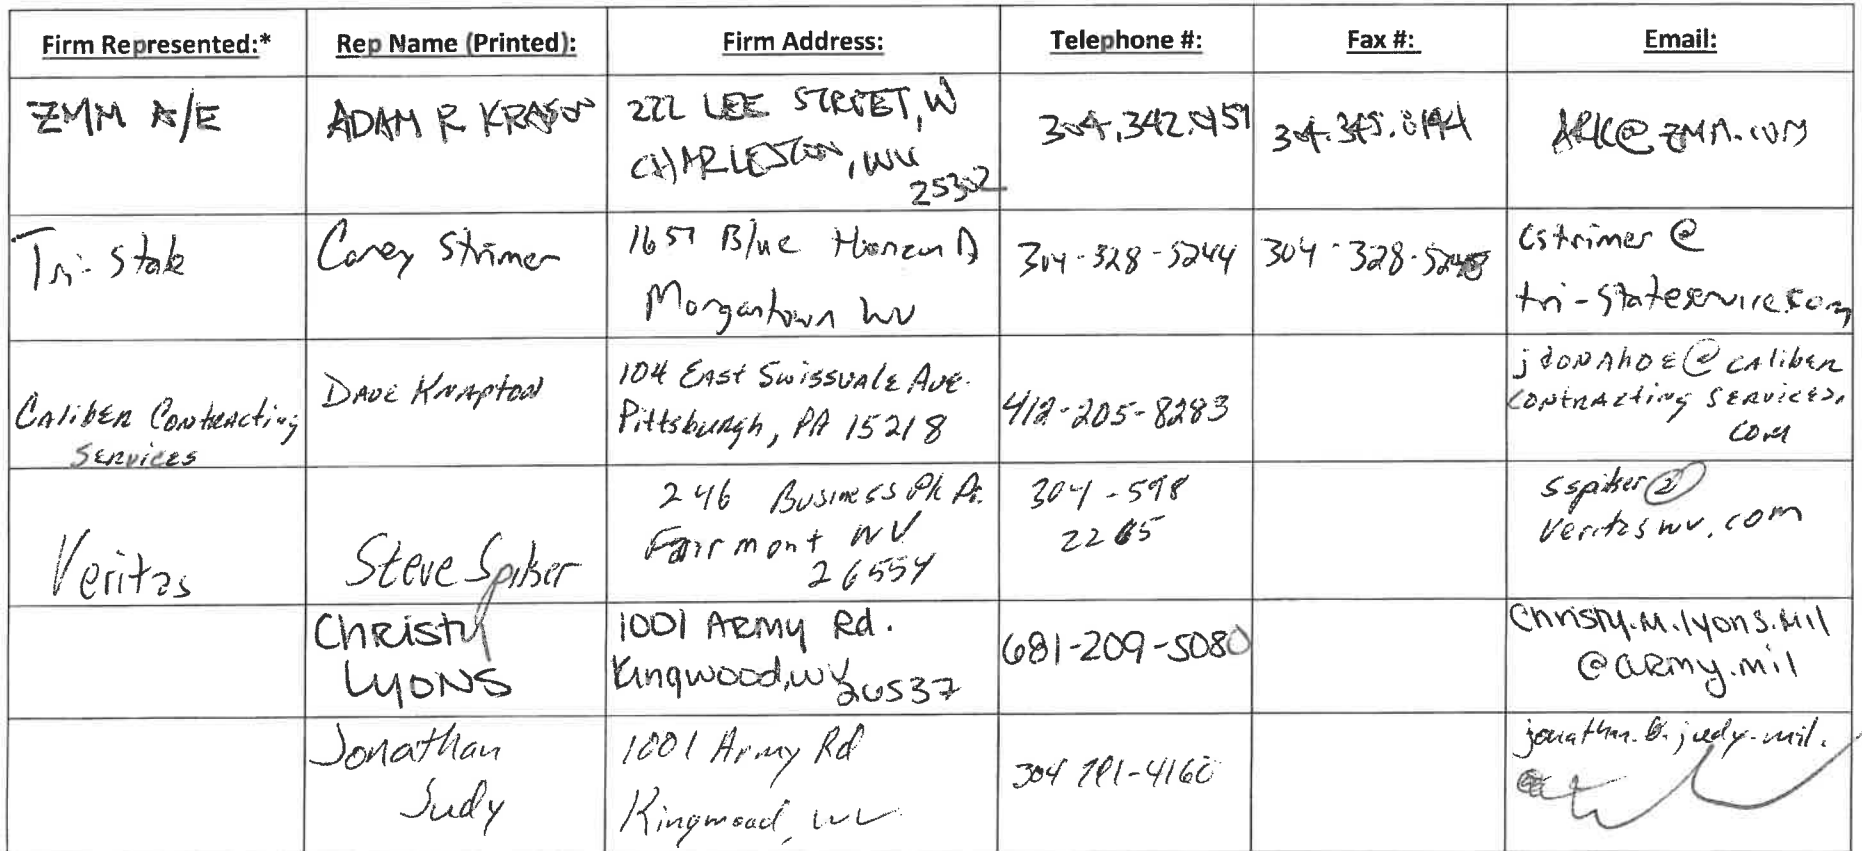 Firm Represented:* Rep Name (Printed): Firm Address: Telephone #: Fax #: Email:
ZMM A/E
ADAM R KRASON
222 LEE STREET, W
CHARLESTON, WV
25302
304.342.0159
304.345.8144
ARK@ZMM.COM
Tri-State
Corey Strimer
1657 Blue Horizon D
Morgantown WV
304-328-5244
304-328-5248
cstrimer@
tri-stateservice.com
CALIBER CONTRACTING
SERVICES
DAVE KNAPTON
104 EAST SWISSVALE AVE.
Pittsburgh, PA 15218
412-205-8283
jdonahoe@caliber
contracting services.
com
Veritas
Steve Spiker
246 Business Pk Dr.
Fairmont WV
26554
304-598
2285
sspiker@
veritaswv.com
Christy
Lyons
1001 Army Rd.
Kingwood, WV 26537
681-209-5080
Christy.M.lyons.mil
@army.mil
Jonathan
Judy
1001 Army Rd
Kingwood, WV
304 791-4160
jonathan.b.judy.mil.